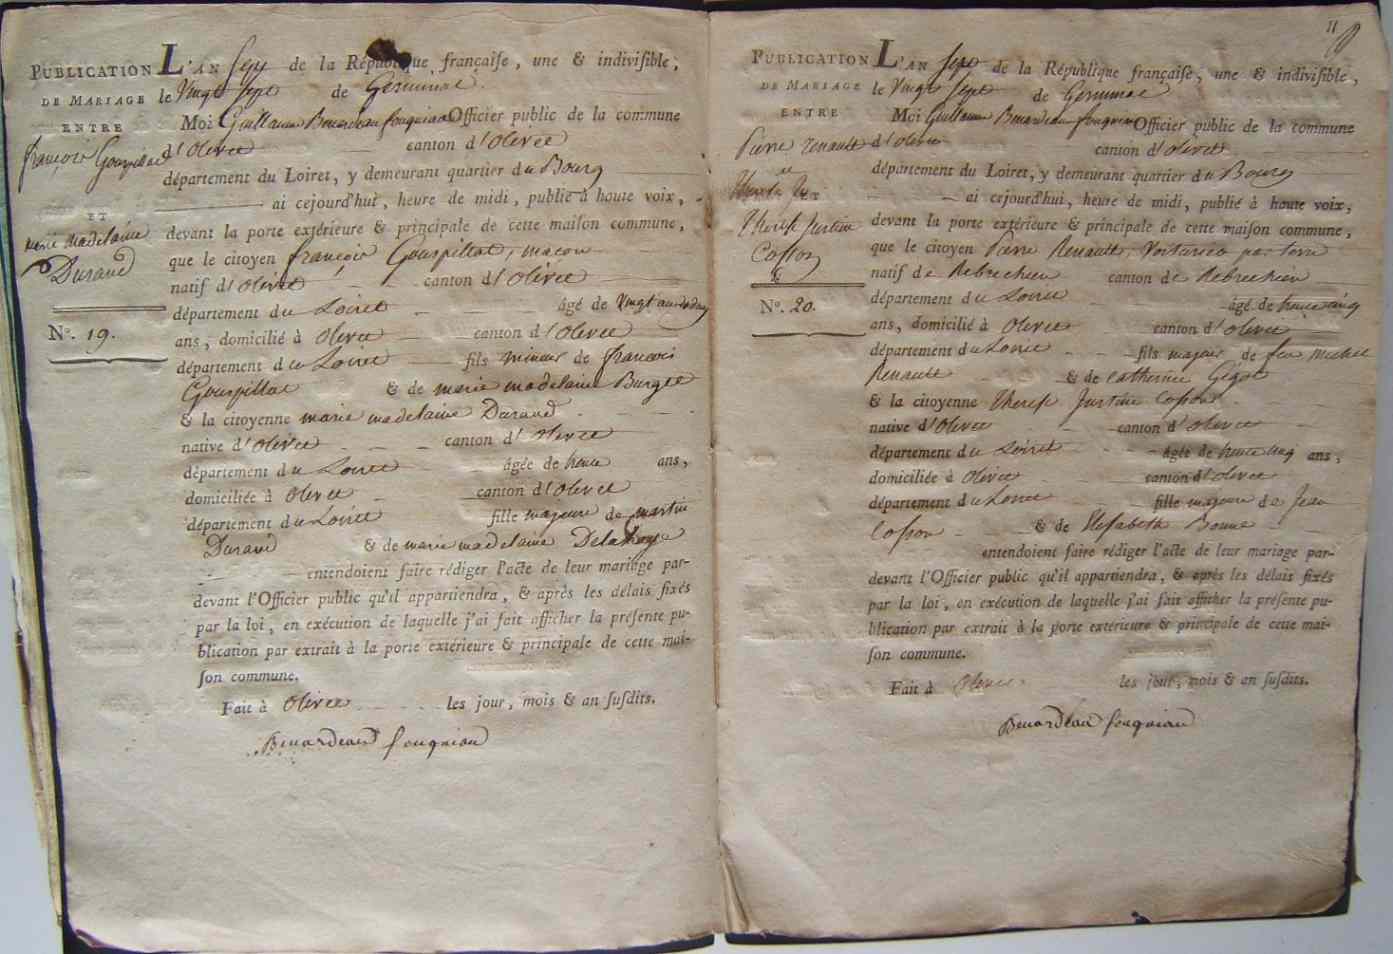 PUBLICATION
DE MARIAGE
ENTRE
françois Gouspillat
ET
marie madelaine
Durand
N°. 19.
L'AN Sept de la République françaiſe, une & indiviſible,
le Vingt Sept de Germinal
Moi Guillaume Benardeau fouquiau Officier public de la commune
d'Olivet canton d'Olivet
département du Loiret, y demeurant quartier du Bourg
ai cejourd'hui, heure de midi, publié à haute voix,
devant la porte extérieure & principale de cette maiſon commune,
que le citoyen françois Gouspillat, macon
natif d'Olivet canton d'Olivet
département du Loiret âgé de Vingt
ans, domicilié à Olivet canton d'Olivet
département du Loiret fils mineur de francois
Gouspillat & de marie madelaine Burgee
& la citoyenne marie madelaine Durand
native d'Olivet canton d'Olivet
département du Loiret âgée de trente ans,
domiciliée à Olivet canton d'Olivet
département du Loiret fille majeure de martin
Durand & de marie madelaine Delahaye
entendoient faire rédiger l'acte de leur mariage par-
devant l'Officier public qu'il appartiendra, & après les délais fixés
par la loi, en exécution de laquelle j'ai fait afficher la préſente pu-
blication par extrait à la porte extérieure & principale de cette mai-
ſon commune.
Fait à Olivet les jour, mois & an ſuſdits.
Benardeau fouquiau
11
PUBLICATION
DE MARIAGE
ENTRE
Pierre renault
ET
Therese Justine
Cosson
N°. 20.
L'AN Sept de la République françaiſe, une & indiviſible,
le Vingt Sept de Germinal
Moi Guillaume Benardeau fouquiau Officier public de la commune
d'Olivet canton d'Olivet
département du Loiret, y demeurant quartier du Bourg
ai cejourd'hui, heure de midi, publié à haute voix,
devant la porte extérieure & principale de cette maiſon commune,
que le citoyen Pierre Renault, Voiturier par terre
natif de Rebrechien canton de Rebrechien
département du Loiret âgé de trente cinq
ans, domicilié à Olivet canton d'Olivet
département du Loiret fils majeur de feu michel
Renault & de Catherine Gigot
& la citoyenne Therese Justine Cosson
native d'Olivet canton d'Olivet
département du Loiret âgée de trente cinq ans,
domiciliée à Olivet canton d'Olivet
département du Loiret fille majeure de Jean
Cosson & de Elisabeth Bonne
entendoient faire rédiger l'acte de leur mariage par-
devant l'Officier public qu'il appartiendra, & après les délais fixés
par la loi, en exécution de laquelle j'ai fait afficher la préſente pu-
blication par extrait à la porte extérieure & principale de cette mai-
ſon commune.
Fait à Olivet les jour, mois & an ſuſdits.
Benardeau fouquiau